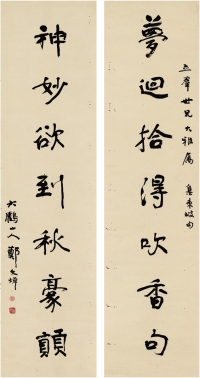 夢迴拾得吹香句
神妙欲到秋豪顛
立群世兄大雅属 集東坡句
大鶴山人鄭文焯